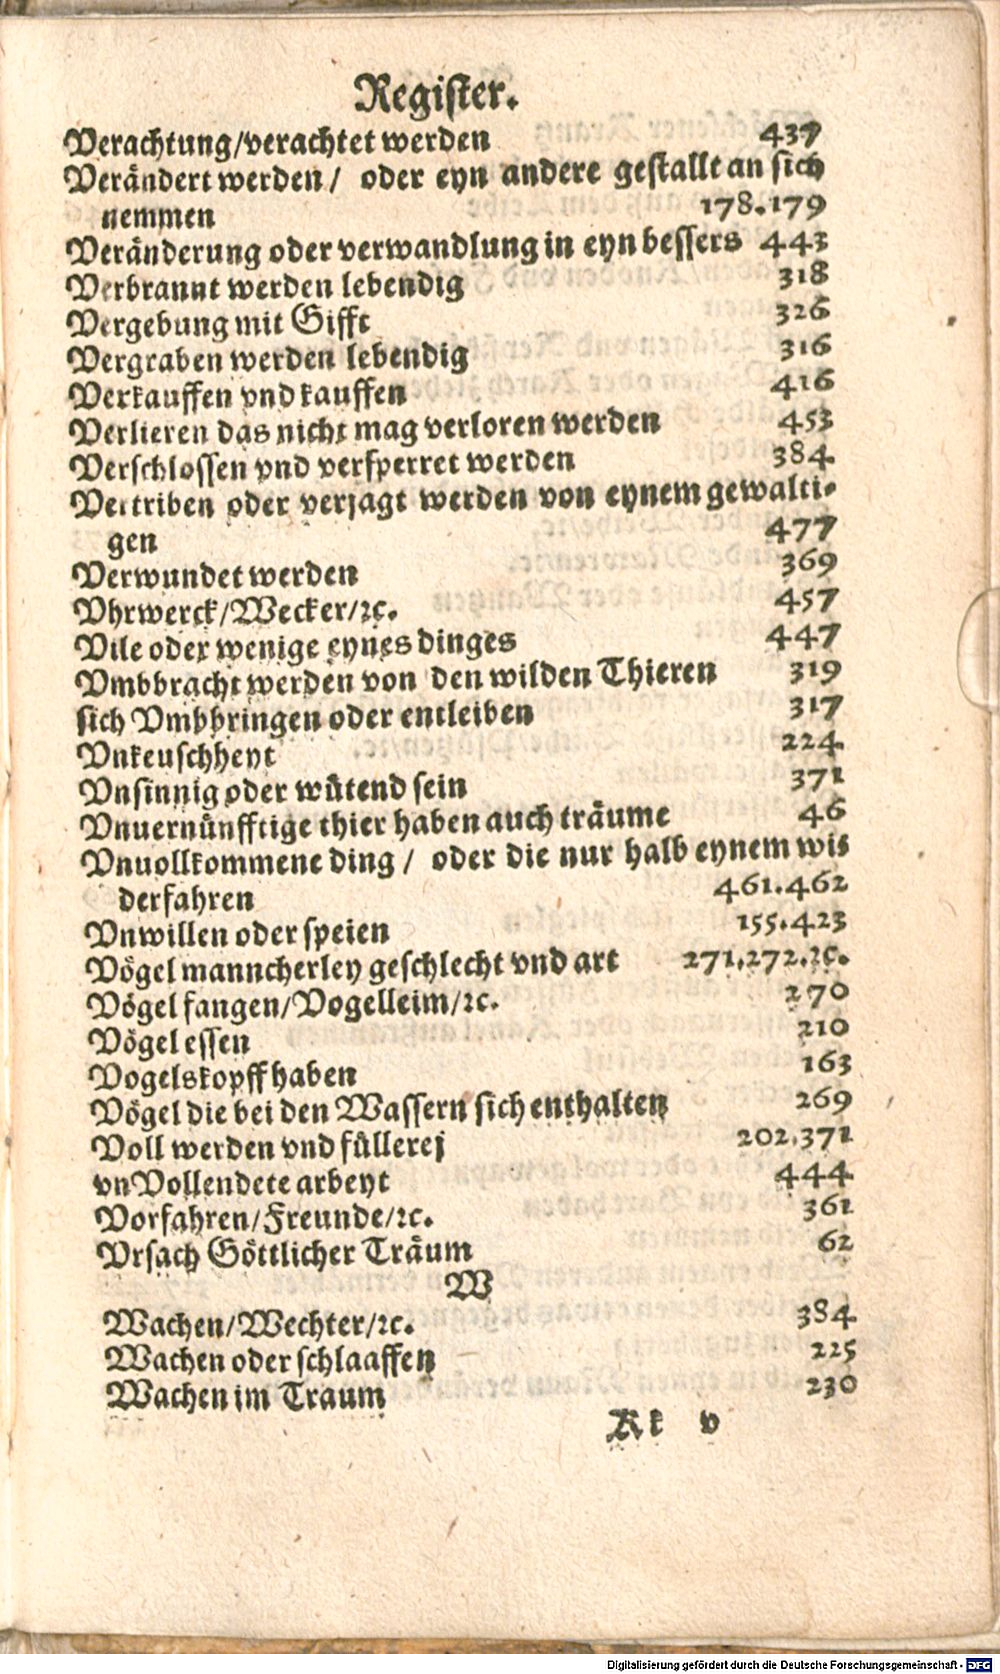 Register.
Verachtung/verachtet werden 437
Verändert werden/ oder eyn andere gestallt an sich
nemmen 178.179
Veränderung oder verwandlung in eyn bessers 443
Verbrannt werden lebendig 318
Vergebung mit Gifft 326
Vergraben werden lebendig 316
Verkauffen vnd kauffen 416
Verlieren das nicht mag verloren werden 453
Verschlossen vnd versperret werden 384
Vertriben oder verjagt werden von eynem gewalti-
gen 477
Verwundet werden 369
Vhrwerck/Wecker/ꝛc. 457
Vile oder wenige eynes dinges 447
Vmbbracht werden von den wilden Thieren 319
sich Vmbbringen oder entleiben 317
Vnkeuschheyt 224
Vnsinnig oder wütend sein 371
Vnuernünfftige thier haben auch träume 46
Vnuollkommene ding/ oder die nur halb eynem wi-
derfahren 461.462
Vnwillen oder speien 155.423
Vögel manncherley geschlecht vnd art 271.272.ꝛc.
Vögel fangen/Vogelleim/ꝛc. 270
Vögel essen 210
Vogelskopff haben 163
Vögel die bei den Wassern sich enthalten 269
Voll werden vnd füllerej 202.371
vnVollendete arbeyt 444
Vorfahren/Freunde/ꝛc. 361
Vrsach Göttlicher Träum 62
W
Wachen/Wechter/ꝛc. 384
Wachen oder schlaaffen 225
Wachen im Traum 230
Kk v
Digitalisierung gefördert durch die Deutsche Forschungsgemeinschaft - DFG